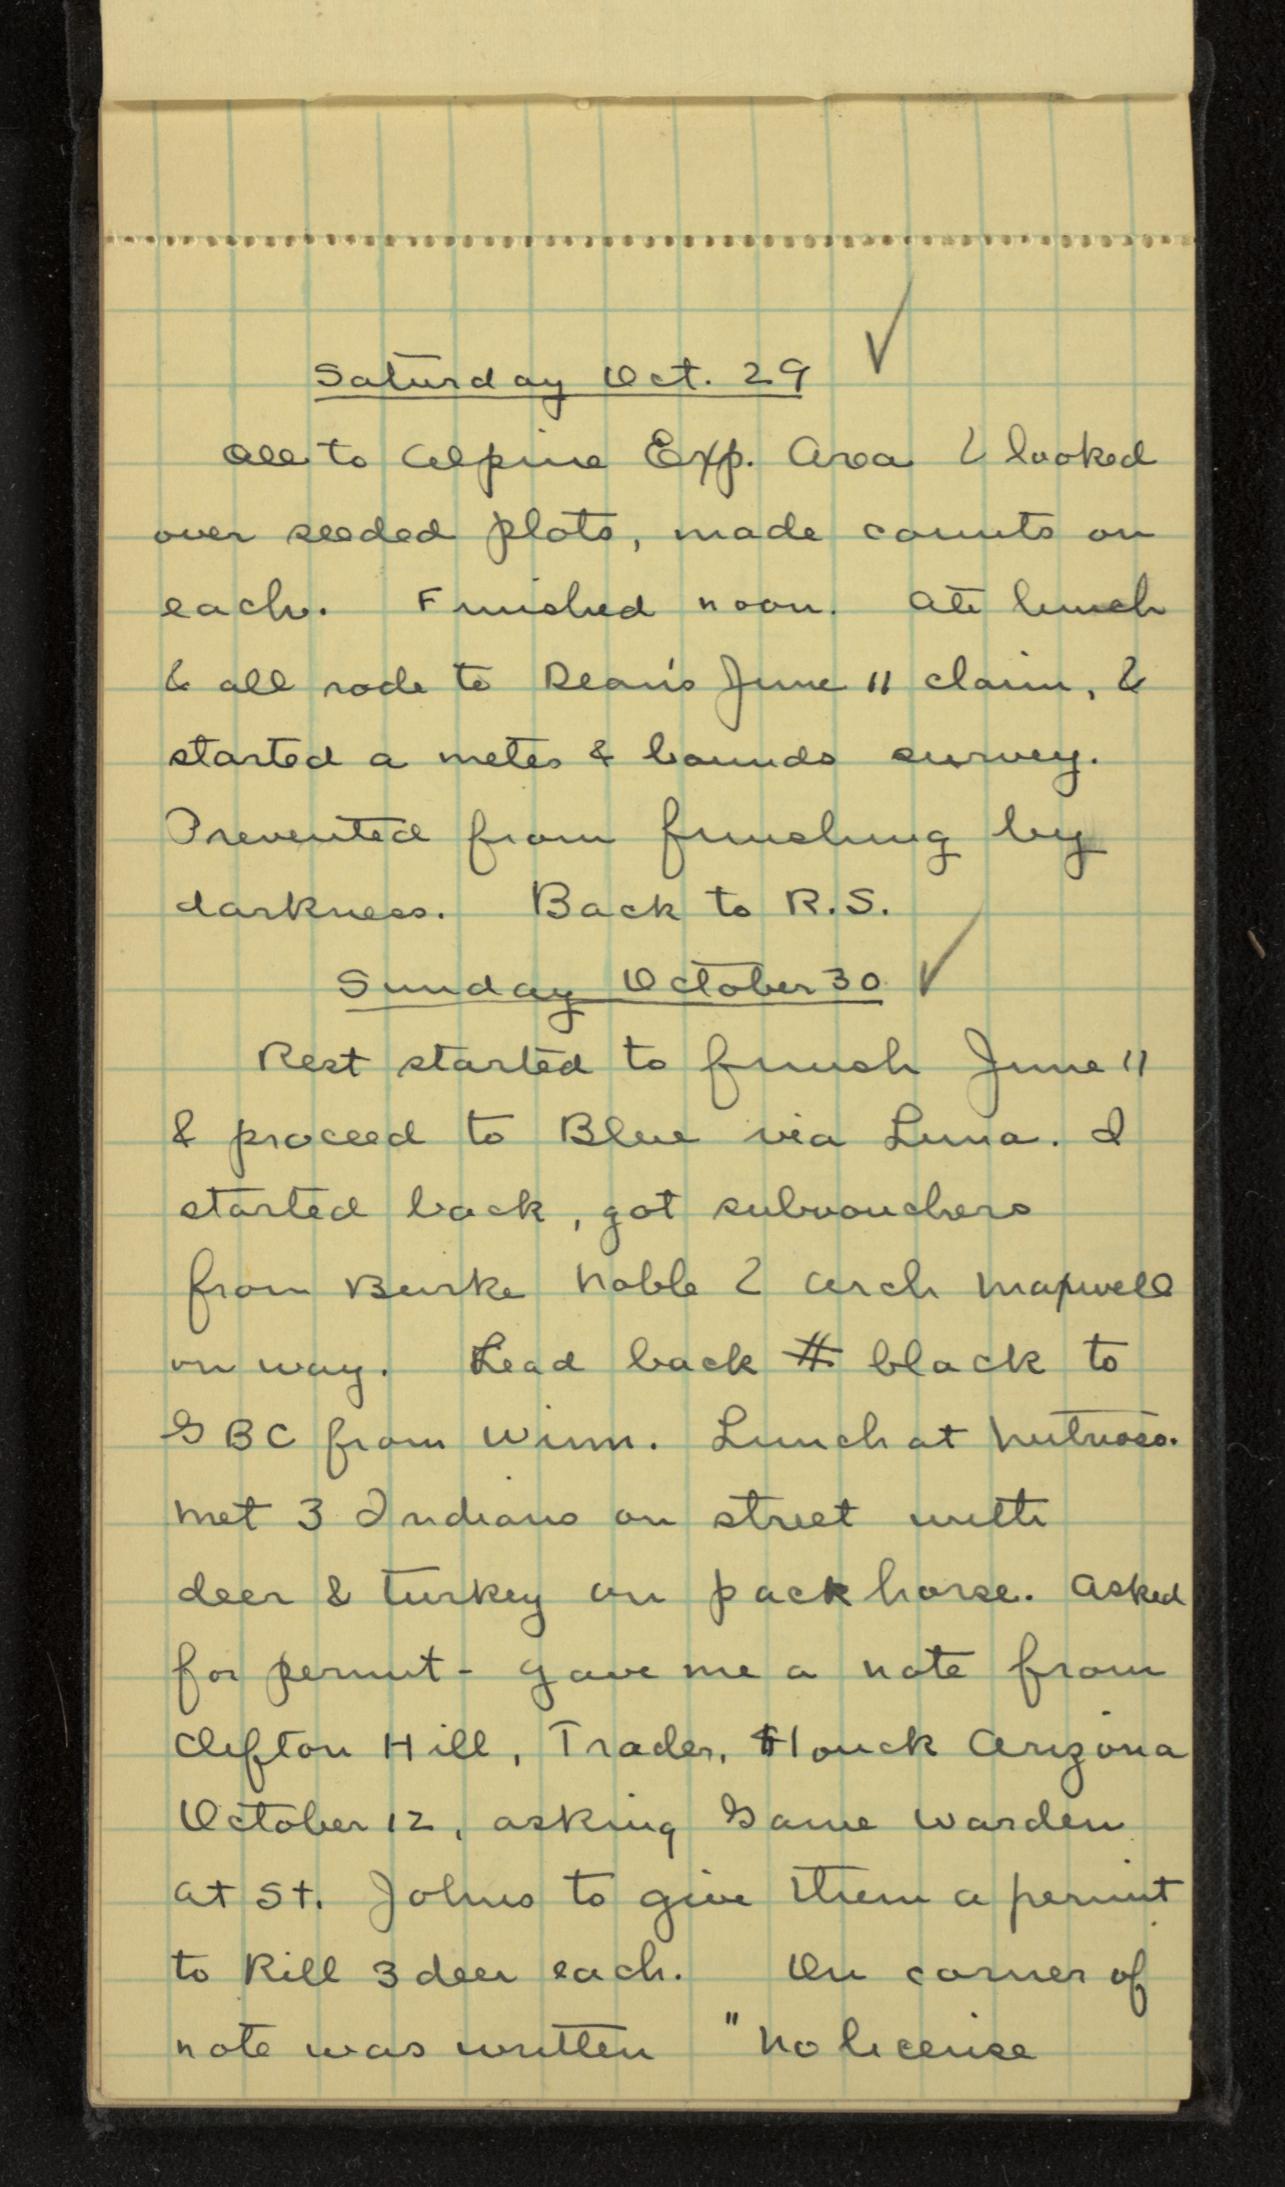 Saturday Oct. 29 ✓
All to Alpine Exp. Area & looked
over seeded plots, made counts on
each. Finished noon. Ate lunch
& all rode to Dean's June 11 claim, &
started a metes & bounds survey.
Prevented from finishing by
darkness. Back to R.S.
Sunday October 30 ✓
Rest started to finish June 11
& proceed to Blue via Luna. I
started back, got subvouchers
from Burke Noble & Arch Maxwell
on way. Lead back # black to
GBC from Winn. Lunch at Nutrioso.
Met 3 Indians on street with
deer & turkey on pack horse. Asked
for permit - gave me a note from
Clifton Hill, Trader, Houck Arizona
October 12, asking Game Warden
at St. Johns to give them a permit
to kill 3 deer each. On corner of
note was written "No license